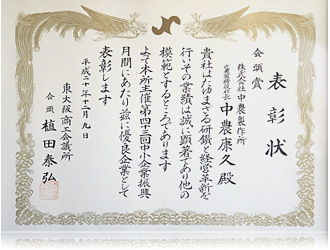 表彰状
会頭賞
株式会社中農製作所
代表取締役社長 中農康久 殿
貴社はたゆまざる研鑽と経営革新を
行いその業績は誠に顕著であり他の
模範とするところであります
よって本所主催第四十三回中小企業振興
月間にあたり茲に優良企業として
表彰します
平成二十年十二月九日
東大阪商工会議所
会頭 植田泰弘